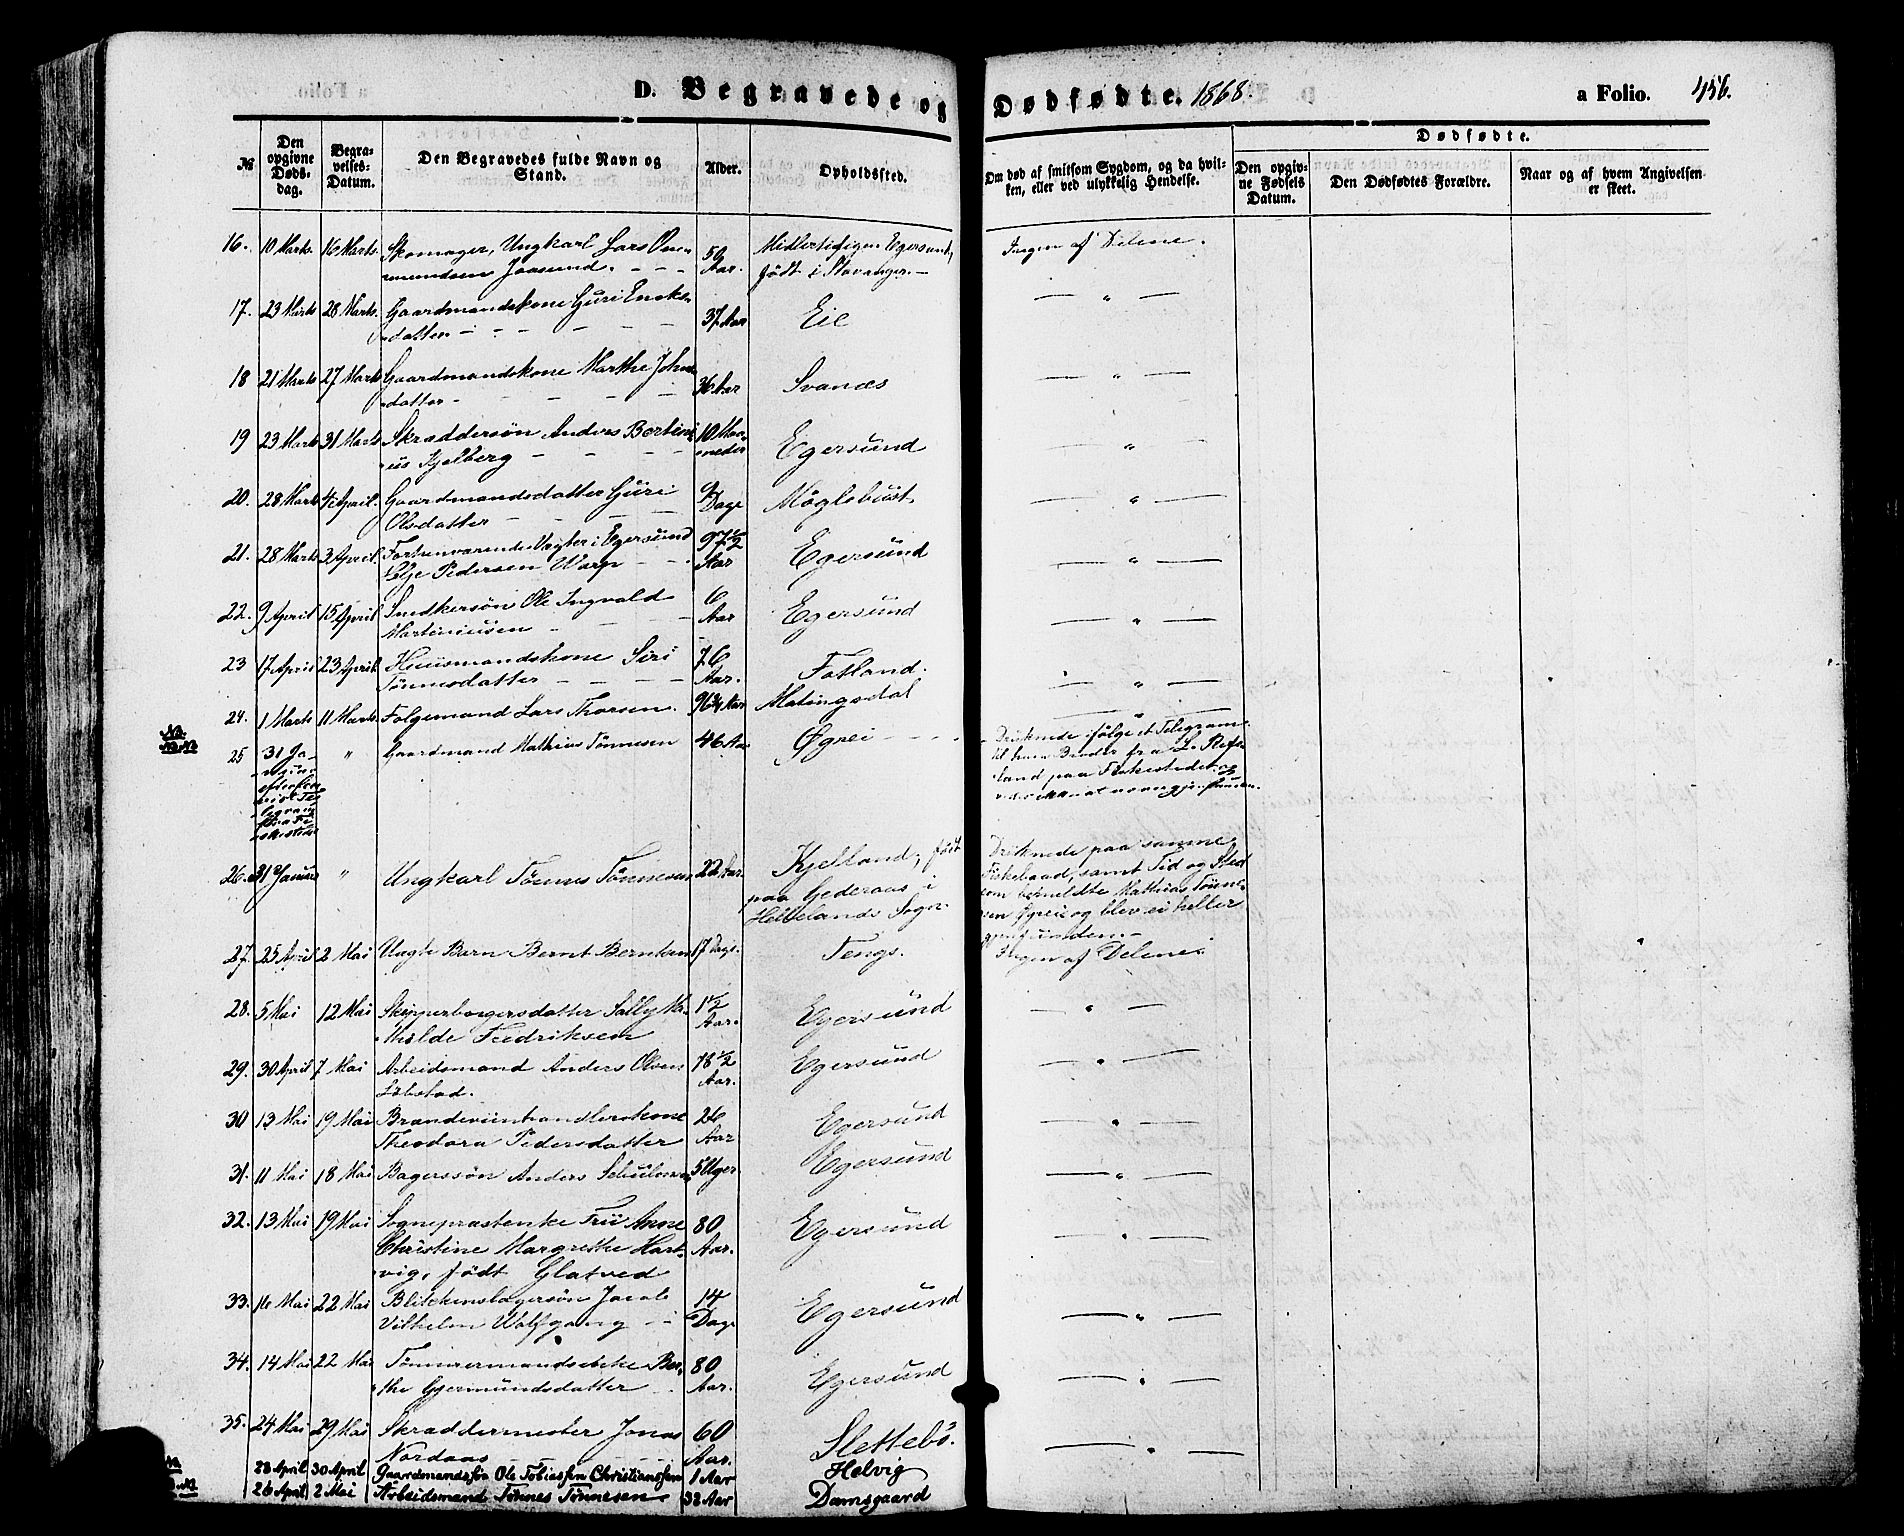 D. Begravede og Dødfødte. 1868. a Folio. 456.
№ Den opgivne Dødsdag. Begravelses-Datum. Den Begravedes fulde Navn og Stand. Alder. Opholdssted. Om død af smitsom Sygdom, og da hvilken, eller ved ulykkelig Hendelse. Dødfødte. Den opgivne Fødsels Datum. Den Dødfødtes Forældre. Naar og af hvem Angivelsen er skeet.
16. 10 Marts. 16 Marts. Skomager, Ungkarl Lars Om- 59 Midlertidigen Egersund, Ingen af Delene.
mundsen Aar. født i Stavanger.
17. 23 Marts 28 Marts. Gaardmandskone Guri 37 Aar Eie — " —
datter
18 21 Marts 27 Marts Gaardmandskone Marthe 36 Aar Svanæs — " —
datter
19 23 Marts 31 Marts Skraddersøn Anders Bertini- 10 Maa- Egersund "
us Kjelberg neder
20. 28 Marts 4 April. Gaardmandsdatter Guri 9 Møglebust — " —
Olsdatter Dage
21. 28 Marts 3 April. Forhenværende Vægter i Egersund 97½ Egersund — " —
Pedersen Warp Aar
22. 9 April 15 April Snedkersøn Ole Ingvald 6 Egersund — " —
Martiniusen Aar
23 17 April 23 April. Huusmandskone Siri 76 Fotland. — " —
Tønnesdatter Aar.
24. 1 Marts 11 Marts. Folgemand Lars Thorsen. Aar Matingsdal — " —
25 31 Ja- " Gaardmand Mathias Tønnesen 46 Aar Øgrei Druknede ifølge et Telegram
til hans Broder fra L. Refs-
land paa Fiskestedet og
26. 31 Januar " Ungkarl Tønnes Tønnesen 22 Aar. Kjelland, født Druknede paa samme
paa Gederaas i Fiskebaad, samt Tid og Sted
Hellelands Sogn. som bemeldte Mathias Tønne-
sen Øgreie og blev ei heller
gjenfunden.
27. 25 April 2 Mai Uægte Barn Bernt Berntsen 17 Dage. Tengs. Ingen af Delene.
28. 5 Mai 12 Mai Skipperborgersdatter Sally Ma- 1½ Egersund — " —
thilde Fredriksen Aar.
29. 30 April 7 Mai Arbeidsmand Anders Olsen 78½ Egersund — " —
Løbstad. Aar.
30 13 Mai 19 Mai Brændeviinhandlerskone 26 Egersund — " —
Theodora Pedersdatter Aar
31. 11 Mai 18 Mai Bagerssøn Anders 5 Uger. Egersund — " —
32. 13 Mai 19 Mai Sognepræstenke Fru Anne 80 Egersund — " —
Christine Margrethe Hart- Aar.
vig, født Glatved
33. 16 Mai 22 Mai Blikkenslagersøn Jacob 14 Egersund — " —
Vilhelm Wolfgang Dage
34. 14 Mai 22 Mai Tømmermandsenke Ber- 80 Egersund — " —
the Gjermundsdatter Aar.
35. 24 Mai 29 Mai Skraddermester Jonas 60 Slettebø. — " —
Nordaas Aar.
23 April 30 April Gaardmandssøn Ole Tobiassen Christiansen 1 Aar Helvig
26 April 2 Mai Arbeidsmand Tønnes Tønnesen 32 Aar Damsgaard